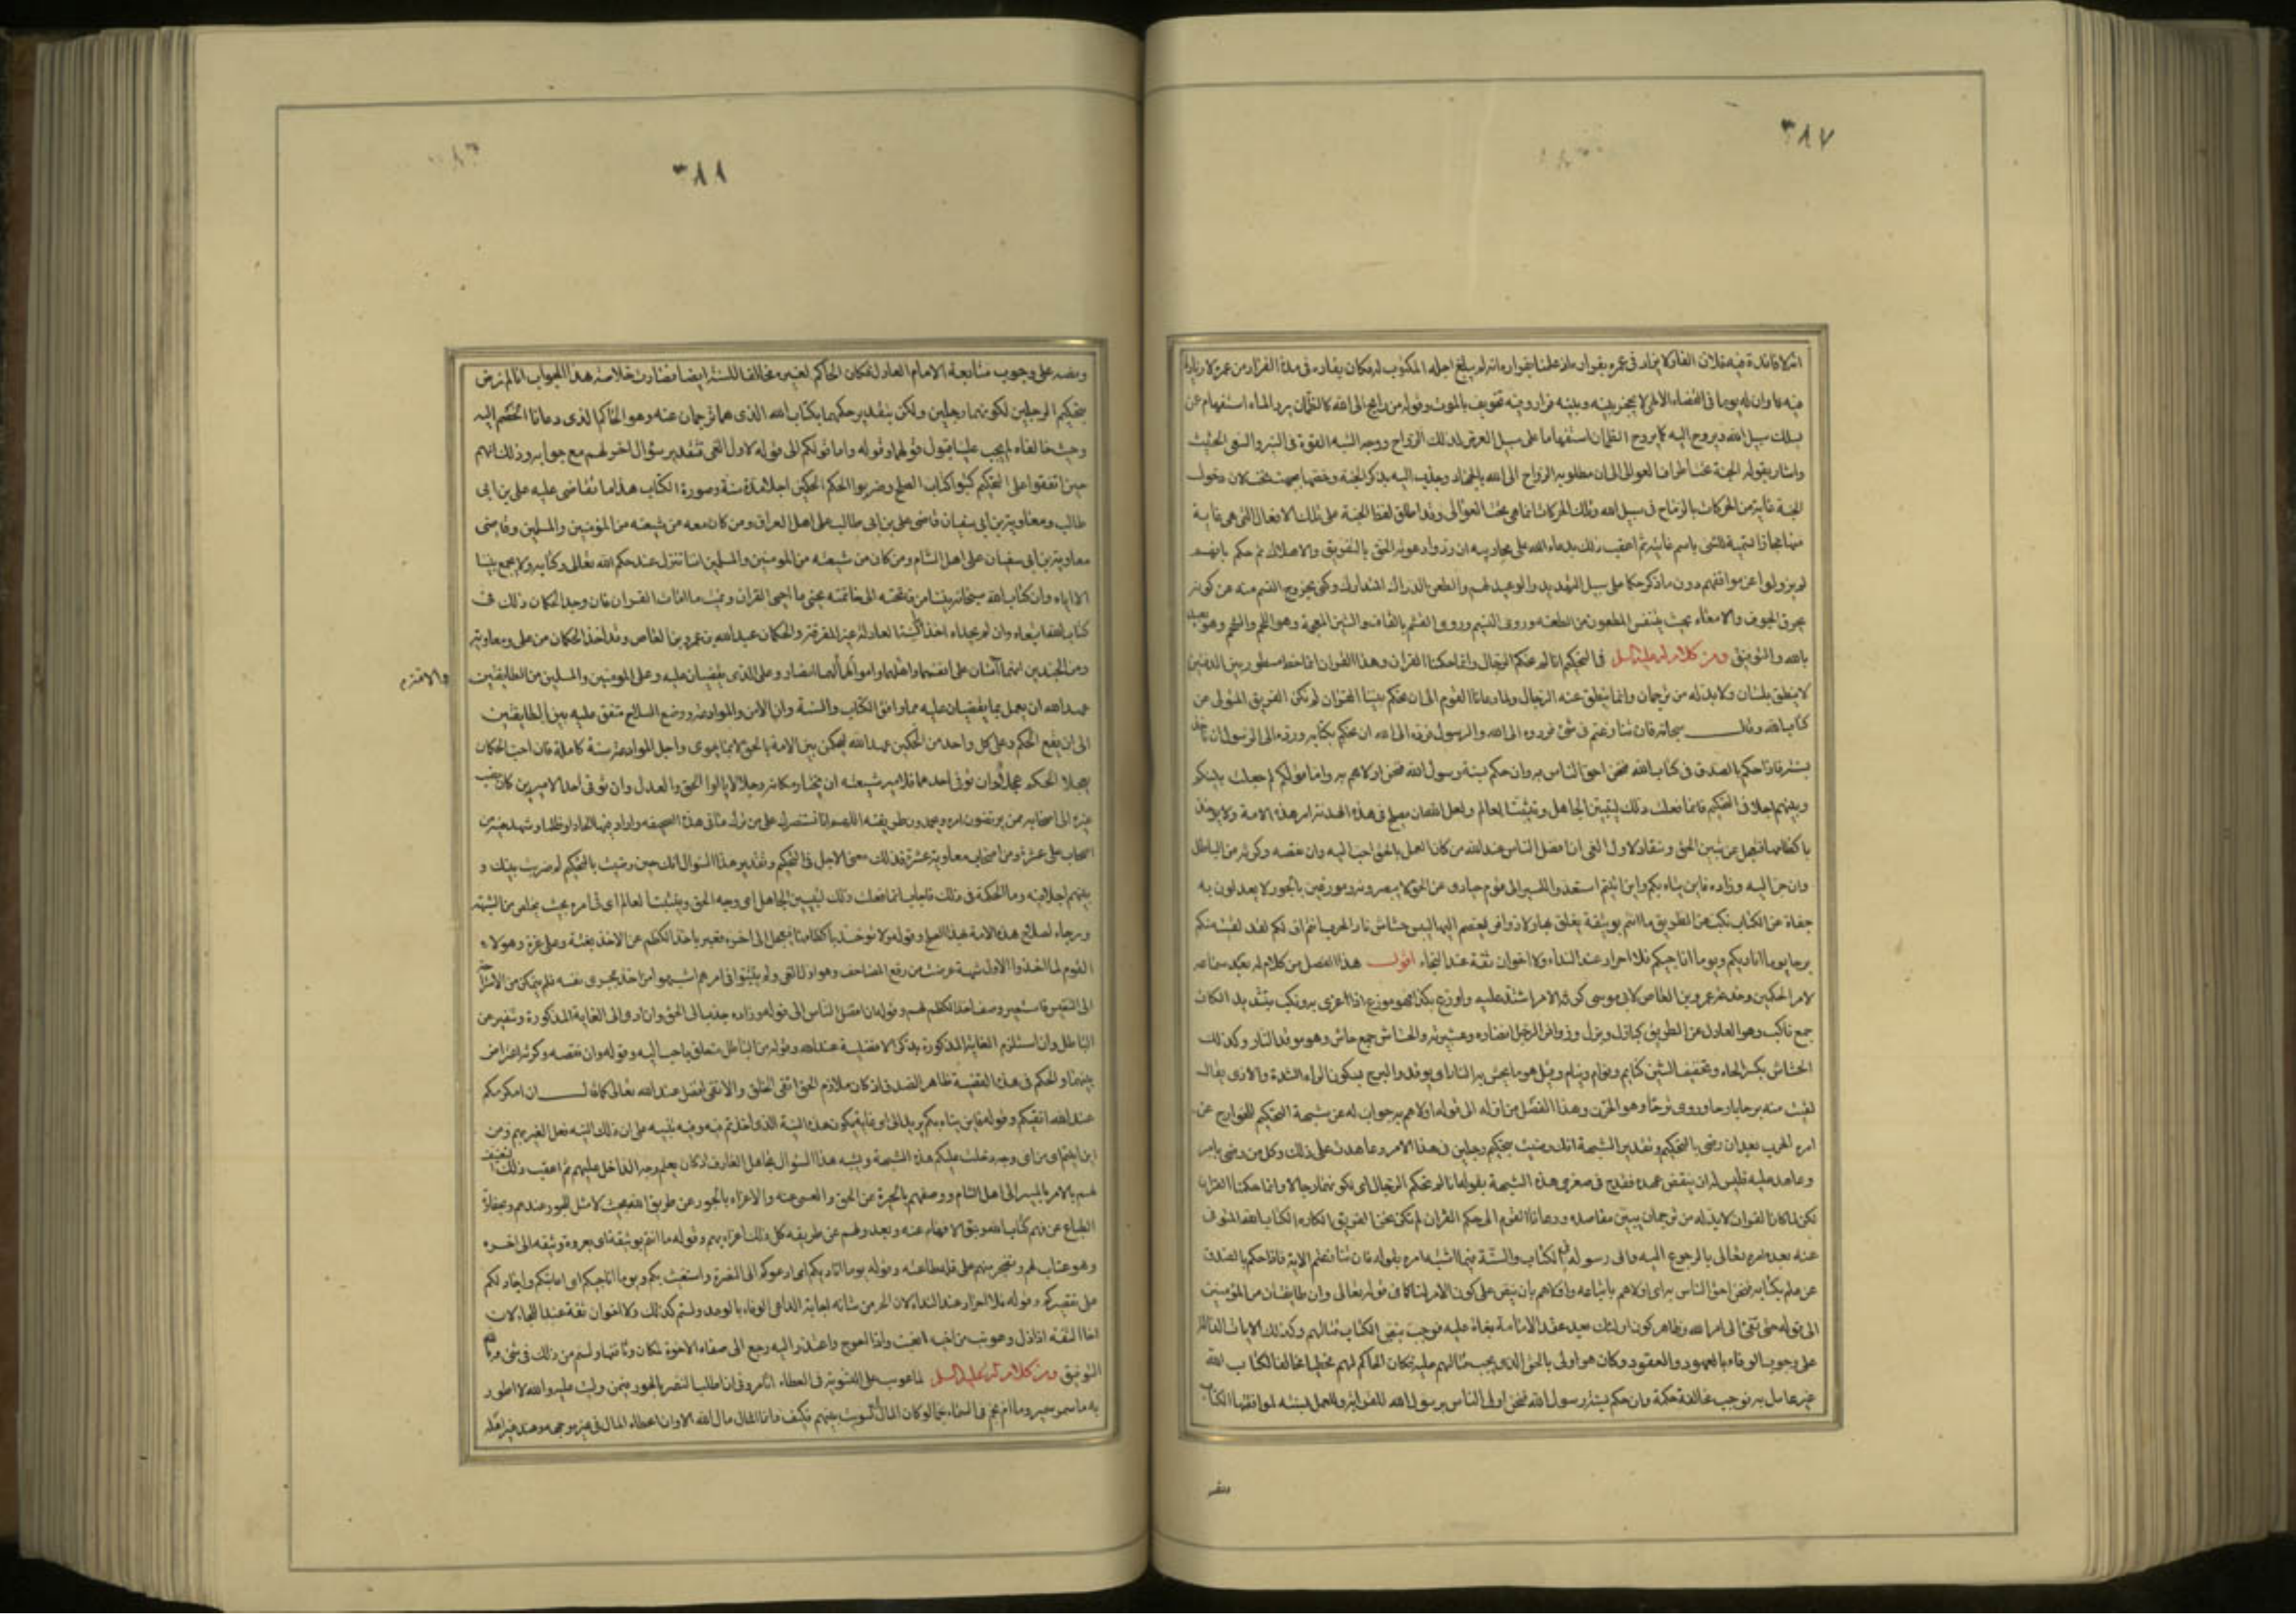 ٣٨٧
انه لا فائدة فيه فلان الفار لا يزاد في عمره بفراره
فيه فا وان له يوما في القضاء الالهى لا يحجز بينه وبينه فراره وفيه تخويف بالموت وقوله من رايح الى الله كالظمان يرد الماء استفهام عن
يسلك سبيل الله ويروح اليه كما يروح الظمان استفهاما على سبيل العرض لذلك الرواح ووجه الشبه القوة في السير والسعى الحثيث
واشار بقوله الجنة تحت اطراف العوالى الى ان مطلوبه الرواح الى الله بالجهاد وجذب اليه بذكر الجنة وخصها بجهة تحت لان دخول
الجنة غاية من الحركات بالرماح في سبيل الله وتلك الحركات انما هى تحت العوالى وقد اطلق لفظ الجنة على تلك الافعال التى هى غاية
منها مجازا تسمية للشئ باسم غايته ثم اعقب ذلك بدعاء الله على محاربيه ان ردوا دعوته الحق بالتفريق والاهلاك ثم حكم بانهم
لم يزولوا عن مواقفهم دون ما ذكر حكما على سبيل التهديد والوعيد لهم والطعن الدراك المتدارك وكنى بخروج النسيم منه عن كونه
يخرق الجوف والامعاء بحيث يتنفس المطعون من الطعنه وروى النسم وروى القشم بالقاف والشين المعجمة وهو اللحم والشحم وهو بعيد
بالله والتوفيق ومن كلام له عليه السلم في التحكيم انا لم نحكم الرجال وانما حكمنا القران وهذا القران انما خط مسطور بين الدفتين
لا ينطق بلسان ولا بد له من ترجمان وانما ينطق عنه الرجال ولما دعانا القوم الى ان نحكم بيننا القران لم نكن الفريق المتولى عن
كتاب الله وقال سبحانه فان تنازعتم في شئ فردوه الى الله والرسول فرده الى الله ان نحكم بكتابه ورده الى الرسول ان ناخذ
بسنته فاذا حكم بالصدق في كتاب الله فنحن احق الناس به وان حكم بسنة رسول الله فنحن اولاهم به واما قولكم لم جعلت بينكم
وبينهم اجلا في التحكيم فانما فعلت ذلك ليتبين الجاهل ويتثبت العالم ولعل الله ان يصلح في هذه الهدنة امر هذه الامة ولا يوخذ
باكظامها فتعجل عن تبين الحق وتنقاد لاول الغى ان افضل الناس عند الله من كان العمل بالحق احب اليه وان نقصه وكرثه من الباطل
وان جر اليه وزاده فاين يتاه بكم واين اتيتم استعدوا للمسير الى قوم حيارى عن الحق لا يبصرونه وموزعين بالجور لا يعدلون به
جفاة عن الكتاب نكب عن الطريق ما انتم بوثيقة يعلق بها ولا زوافر يعتصم اليها لبئس حشاش نار الحرب انتم اف لكم لقد لقيت منكم
برحا يوما اناديكم ويوما اناجيكم فلا احرار عند النداء ولا اخوان ثقة عند النجاء اقول هذا الفصل من كلام له بعد سماعه
لامر الحكمين وخدعة عمرو بن العاص لابى موسى كرثه الامر اشتد عليه واوزع بكذا فهو موزع اذا اغرى به ونكب بتشديد الكاف
جمع ناكب وهو العادل عن الطريق كباذل وبزل وزوافر الرجل انصاره وعشيرته والحشاش جمع حاش وهو موقد النار وكذلك
الحشاش بكسر الحاء وتخفيف الشين كنايم ونوام ونيام وقيل هو ما يحش به النار اى يوقد والبرح بسكون الراء الشدة والاذى يقال
لقيت منه برحا بارحا وروى ترحا وهو الحزن وهذا الفصل من اوله الى قوله اولاهم به جواب له عن شبهة التحكيم للخوارج عن
امره الحرب بعد ان رضى بالتحكيم وتقدير الشبهة انك رضيت بتحكيم رجلين في هذا الامر وعاهدت على ذلك وكل من رضى بامر
وعاهد عليه فليس له ان ينقض عهده فقدح في صغرى هذه الشبهة بقوله انا لم نحكم الرجال اى لكونهما رجالا وانما حكمنا القران
لكن لما كان القران لا بد له من ترجمان يبين مقاصده ودعانا القوم الى حكم القران لم نكن نحن الفريق الكاره الكتاب الله المتولى
عنه بعد امره تعالى بالرجوع اليه والى رسوله في الكتاب والسنة فيما اشتبه امره بقوله فان تنازعتم الاية فاذا حكم بالصدق
عن علم بكتابه فنحن احق الناس به اى اولاهم باتباعه واولاهم بان ينص على كون الامر لنا كما في قوله تعالى وان طايفتان من المؤمنين
الى قوله حتى تفئ الى امر الله وظاهر كون اولئك بعد عقد الامامة بغاة عليه فوجب بنص الكتاب قتالهم وكذلك الايات الدالة
على وجوب الوفاء بالعهود والعقود وكان هو اولى بالحق الذى يجب قتالهم عليه فكان الحاكم لهم مخطيا مخالفا لكتاب الله
غير عامل به فوجب مخالفة حكمه وان حكم بسنة رسول الله فنحن اولى الناس برسول الله للقرابة والعمل لسنته لموافقتها الكتاب
ونصه
٣٨٨
ونصه على وجوب متابعة الامام العادل فكان الحاكم لغيره مخالفا للسنة ايضا فصارت خلاصة هذا الجواب انا لم نرض
بتحكيم الرجلين لكونهما رجلين ولكن بتقدير حكمهما بكتاب الله الذى هما ترجمان عنه وهو الحاكم الذى دعانا الخصم اليه
وحيث خالفاه لم يجب علينا قبول قولهما وقوله واما قولكم الى قوله لاول الغى تقدير سؤال اخر لهم مع جوابه وذلك انهم
حين اتفقوا على التحكيم كتبوا كتاب الصلح وضربوا لحكم الحكمين اجلا مدة سنة وصورة الكتاب هذا ما تقاضى عليه على بن ابى
طالب ومعاوية بن ابى سفيان قاضى على بن ابى طالب على اهل العراق ومن كان معه من شيعته من المؤمنين والمسلمين وقاضى
معاوية بن ابى سفيان على اهل الشام ومن كان من شيعته من المومنين والمسلمين اننا ننزل عند حكم الله تعالى وكتابه ولا يجمع بيننا
الا اياه وان كتاب الله سبحانه بيننا من فاتحته الى خاتمته نحيى ما احيى القران ونميت ما امات القران فان وجد الحكمان ذلك في
كتاب الله اتبعاه وان لم يجداه اخذا بالسنة العادلة غير المفرقة والحكمان عبد الله بن قيس وعمرو بن العاص وقد اخذ الحكمان من على ومعاوية
ومن الجندين انهما آمنان على انفسهما واهلهما واموالهما والامة لهما انصار وعلى الذى يقضيان عليه وعلى المومنين والمسلمين من الطايفتين
عهد الله ان يعمل بما يقضيان عليه مما وافق الكتاب والسنة وان الامن والموادعة ووضع السلاح متفق عليه بين الطايفتين
الى ان يقع الحكم وعلى كل واحد من الحكمين عهد الله ليحكمن بين الامة بالحق لا بما يهوى واجل الموادعة سنة كاملة فان احب الحكمان
يعجلا الحكم عجلا وان توفى احدهما فلامير شيعته ان يختار مكانه رجلا لا يالوا الحق والعدل وان توفى احد الاميرين كان نصب
غيره الى اصحابه ممن يرتضون امره ويحمدون طريقته اللهم انا نستنصرك على من ترك ما في هذه الصحيفة واراد فيها الحادا وظلما وشهد فيه من
اصحاب على عشرة ومن اصحاب معاوية عشرة فذلك معنى الاجل في التحكيم وتقدير هذا السوال انك حين رضيت بالتحكيم لم ضربت بينك و
بينهم اجلا فيه وما الحكمة في ذلك فاجاب انما فعلت ذلك ليتبين الجاهل اى وجه الحق ويتثبت العالم اى في امره بحيث يخلص من الشبهة
ورجاء لصلاح هذه الامة بهذا الصلح وقوله ولا توخذ باكظامها فتعجل الى اخره فعبر باخذ الكظم عن الاخذ بغتة وعلى غرة وهولاء
القوم لما اخذوا لاول شبهة عرضت من رفع المصاحف وهو اول الغى ولم يتثبتوا في امرهم اشبهوا من اخذ بمجرى نفسه فلم يتمكن من الاستراحة
الى التنفس فاستعير وصف اخذ الكظم لهم وقوله ان افضل الناس الى قوله وزاده جذب الى الحق وان ادى الى الغاية المذكورة وتنفير من
الباطل وان استلزم الغاية المذكورة بذكر الافضلية عند الله وقوله من الباطل متعلق باحب اليه وقوله وان نقصه وكرثه اعتراض
بينهما والحكم في هذه القضية ظاهر الصدق اذ كان ملازم الحق اتقى الخلق والاتقى افضل عند الله تعالى كما قال ان اكرمكم
عند الله اتقيكم وقوله فاين يتاه بكم يريد الى اى غاية يكون هذه التيه الذى اخذتم فيه وفيه تنبيه على ان ذلك التيه فعل الغير بهم ومن
اين اتيتم اى من اى وجه دخلت عليكم هذه الشبهة ويشبه هذا السؤال تجاهل العارف اذ كان يعلم وجه الداخل عليهم ثم اعقب ذلك التعنيف
لهم بالامر بالمسير الى اهل الشام ووصفهم بالحيرة عن الحق والعمى عنه والاغراء بالجور عن طريق الله بحيث لا مثل للجور عندهم وبجفاوة
الطباع عن فهم كتاب الله ونبو الافهام عنه وبعدولهم عن طريقه كل ذلك اغراء بهم وقوله ما انتم بوثيقة اى بعروة وثيقه الى اخره
وهو عتاب لهم وتضجر منهم على قلة طاعته وقوله يوما اناديكم اى ادعوكم الى النصرة واستغيث بكم ويوما اناجيكم اى اعاتبكم واجادلكم
على تقصيركم وقوله فلا احرار عند النداء لان الحر من شانه اجابة الداعى والوفاء بالوعد ولستم كذلك ولا اخوان ثقة عند النجاء لان
اخا الثقة اذا زل وعوتب من اخيه انعتب واذا اعوج واعتذر اليه رجع الى صفاء الاخوة لمكان وثاقتها ولستم من ذلك في شئ وبالله
التوفيق ومن كلام له عليه السلم لما عوتب على التسوية في العطاء اتامرونى ان اطلب النصر بالجور فيمن وليت عليه والله لا اطور
به ما سمر سمير وما ام نجم في السماء نجما لو كان المال لى لسويت بينهم فكيف وانما المال مال الله الا وان اعطاء المال في غير
والامة